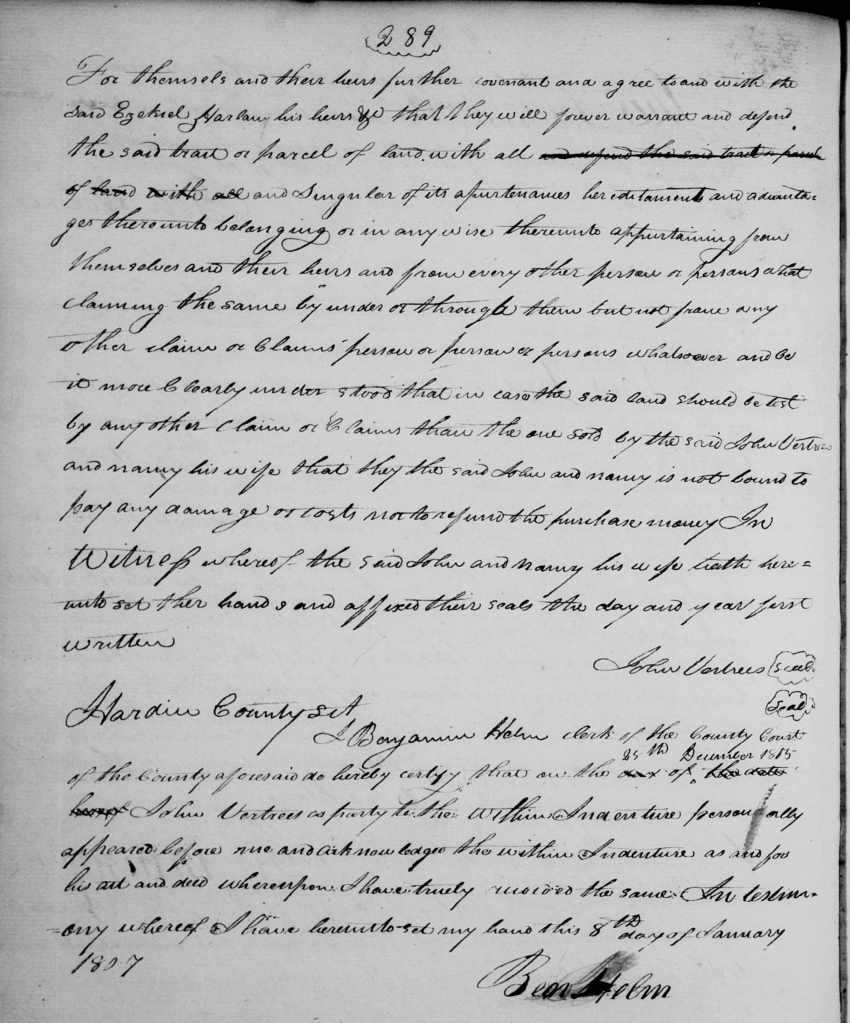 289
For themsels and their heirs further covenant and agree to and with the
said Ezekiel Harlan his heirs &c that they will forever warrant and defend
the said tract or parcel of land with all and defend the said tract or parcel
of land with all and Singular of its apurtenances hereditaments and advanta-
ges thereunto belonging or in any wise thereunto appurtaining from
themselves and their heirs and from every other person or persons
claiming the same by under or through them but not from any
other claim or Claims person or person or persons whatsoever and be
it more Clearly under stood that in case the said land should be lost
by any other Claim or Claims than the one sold by the said John Vertrees
and nancy his wife that they the said John and nancy is not bound to
pay any damage or costs nor to refund the purchase money In
Witness whereof the said John and nancy his wife hath here=
unto set ther hands and affixed their seals the day and year first
written
John Vertrees seal
seal
Hardin County sct
I Benjamin Helm clerk of the County Court
25th December 1815
of the County aforesaid do hereby certify that on the day of the date
hereof John Vertrees as party to the within Indenture personally
appeared before me and acknowledged the within Indenture as and for
his act and deed whereupon I have truely recorded the same In testim-
=ony whereof I have hereunto set my hand this 8th day of January
1807
Ben Helm